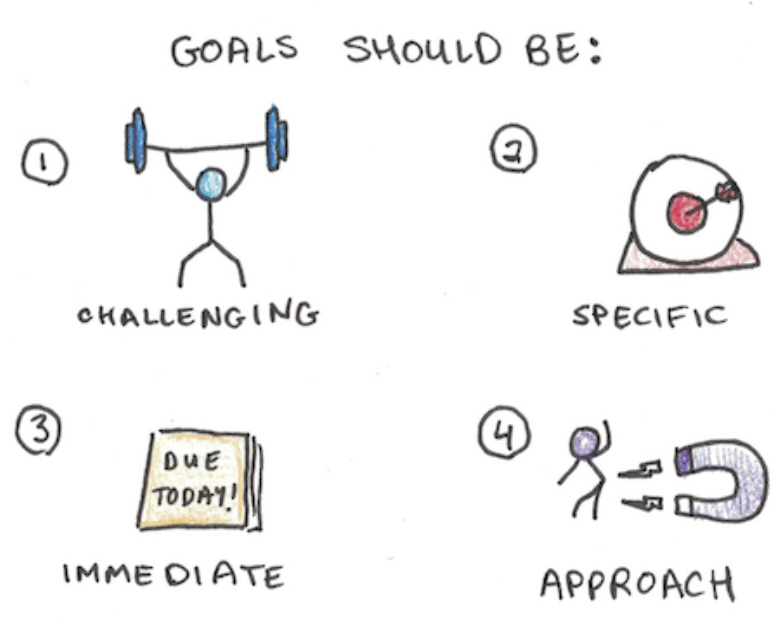 GOALS SHOULD BE:
1
CHALLENGING
2
SPECIFIC
3
DUE
TODAY!
IMMEDIATE
4
APPROACH